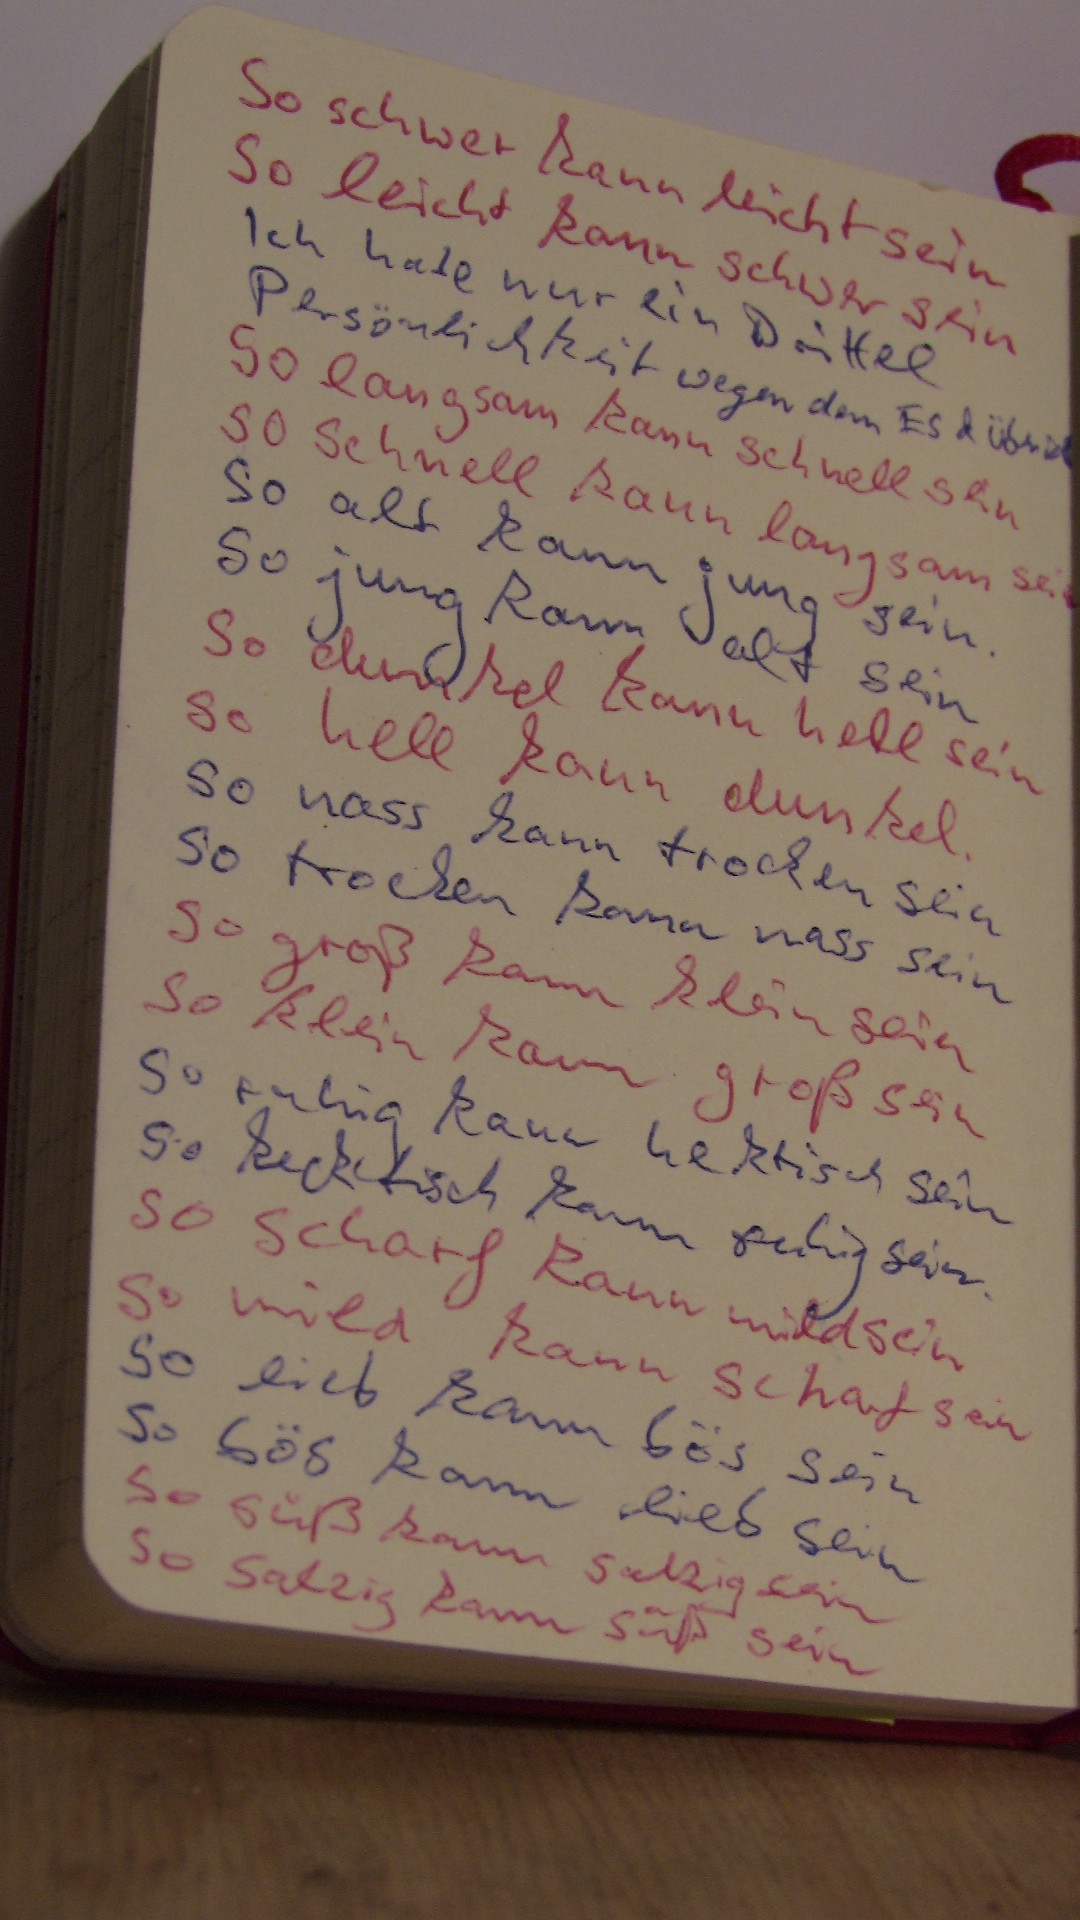 So schwer kann leicht sein
So leicht kann schwer sein
Ich habe nur ein Drittel
Persönlichkeit wegen dem Es &
So langsam kann schnell sein
So schnell kann langsam sei
So alt kann jung sein.
So jung kann alt sein
So dunkel kann hell sein
So hell kann dunkel.
So nass kann trocken sein
So trocken kann nass sein
So groß kann klein sein
So klein kann groß sein
So ruhig kann hektisch sein
So kann ruhig sein.
So scharf kann mild sein
So mild kann scharf sein
So lieb kann bös sein
So bös kann lieb sein
So süß kann salzig sein
So salzig kann süß sein